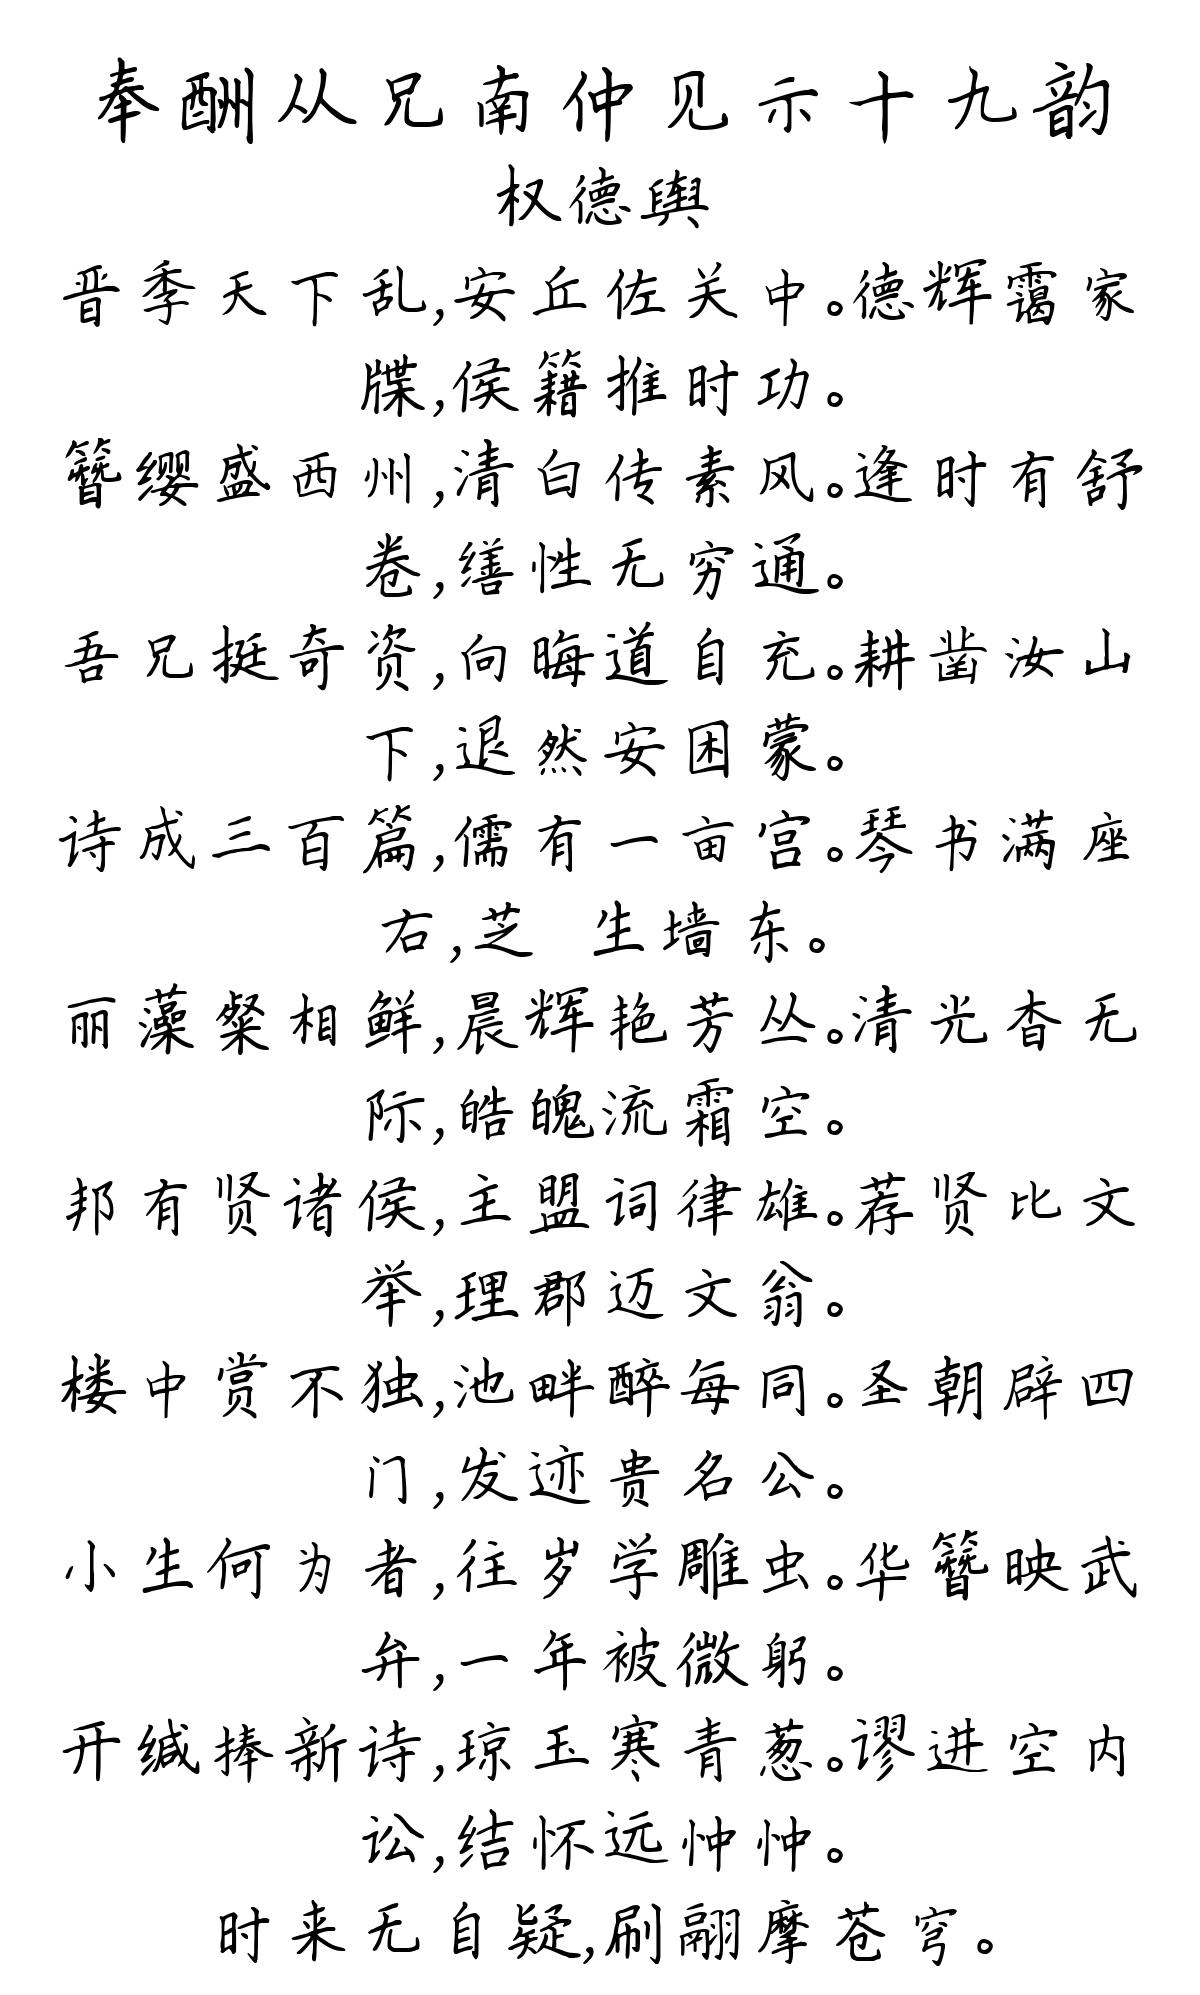 奉酬从兄南仲见示十九韵
权德舆
晋季天下乱,安丘佐关中。德辉霭家
牒,侯籍推时功。
簪缨盛西州,清白传素风。逢时有舒
卷,缮性无穷通。
吾兄挺奇资,向晦道自充。耕凿汝山
下,退然安困蒙。
诗成三百篇,儒有一亩宫。琴书满座
右,芝 生墙东。
丽藻粲相鲜,晨辉艳芳丛。清光杳无
际,皓魄流霜空。
邦有贤诸侯,主盟词律雄。荐贤比文
举,理郡迈文翁。
楼中赏不独,池畔醉每同。圣朝辟四
门,发迹贵名公。
小生何为者,往岁学雕虫。华簪映武
弁,一年被微躬。
开缄捧新诗,琼玉寒青葱。谬进空内
讼,结怀远忡忡。
时来无自疑,刷翮摩苍穹。